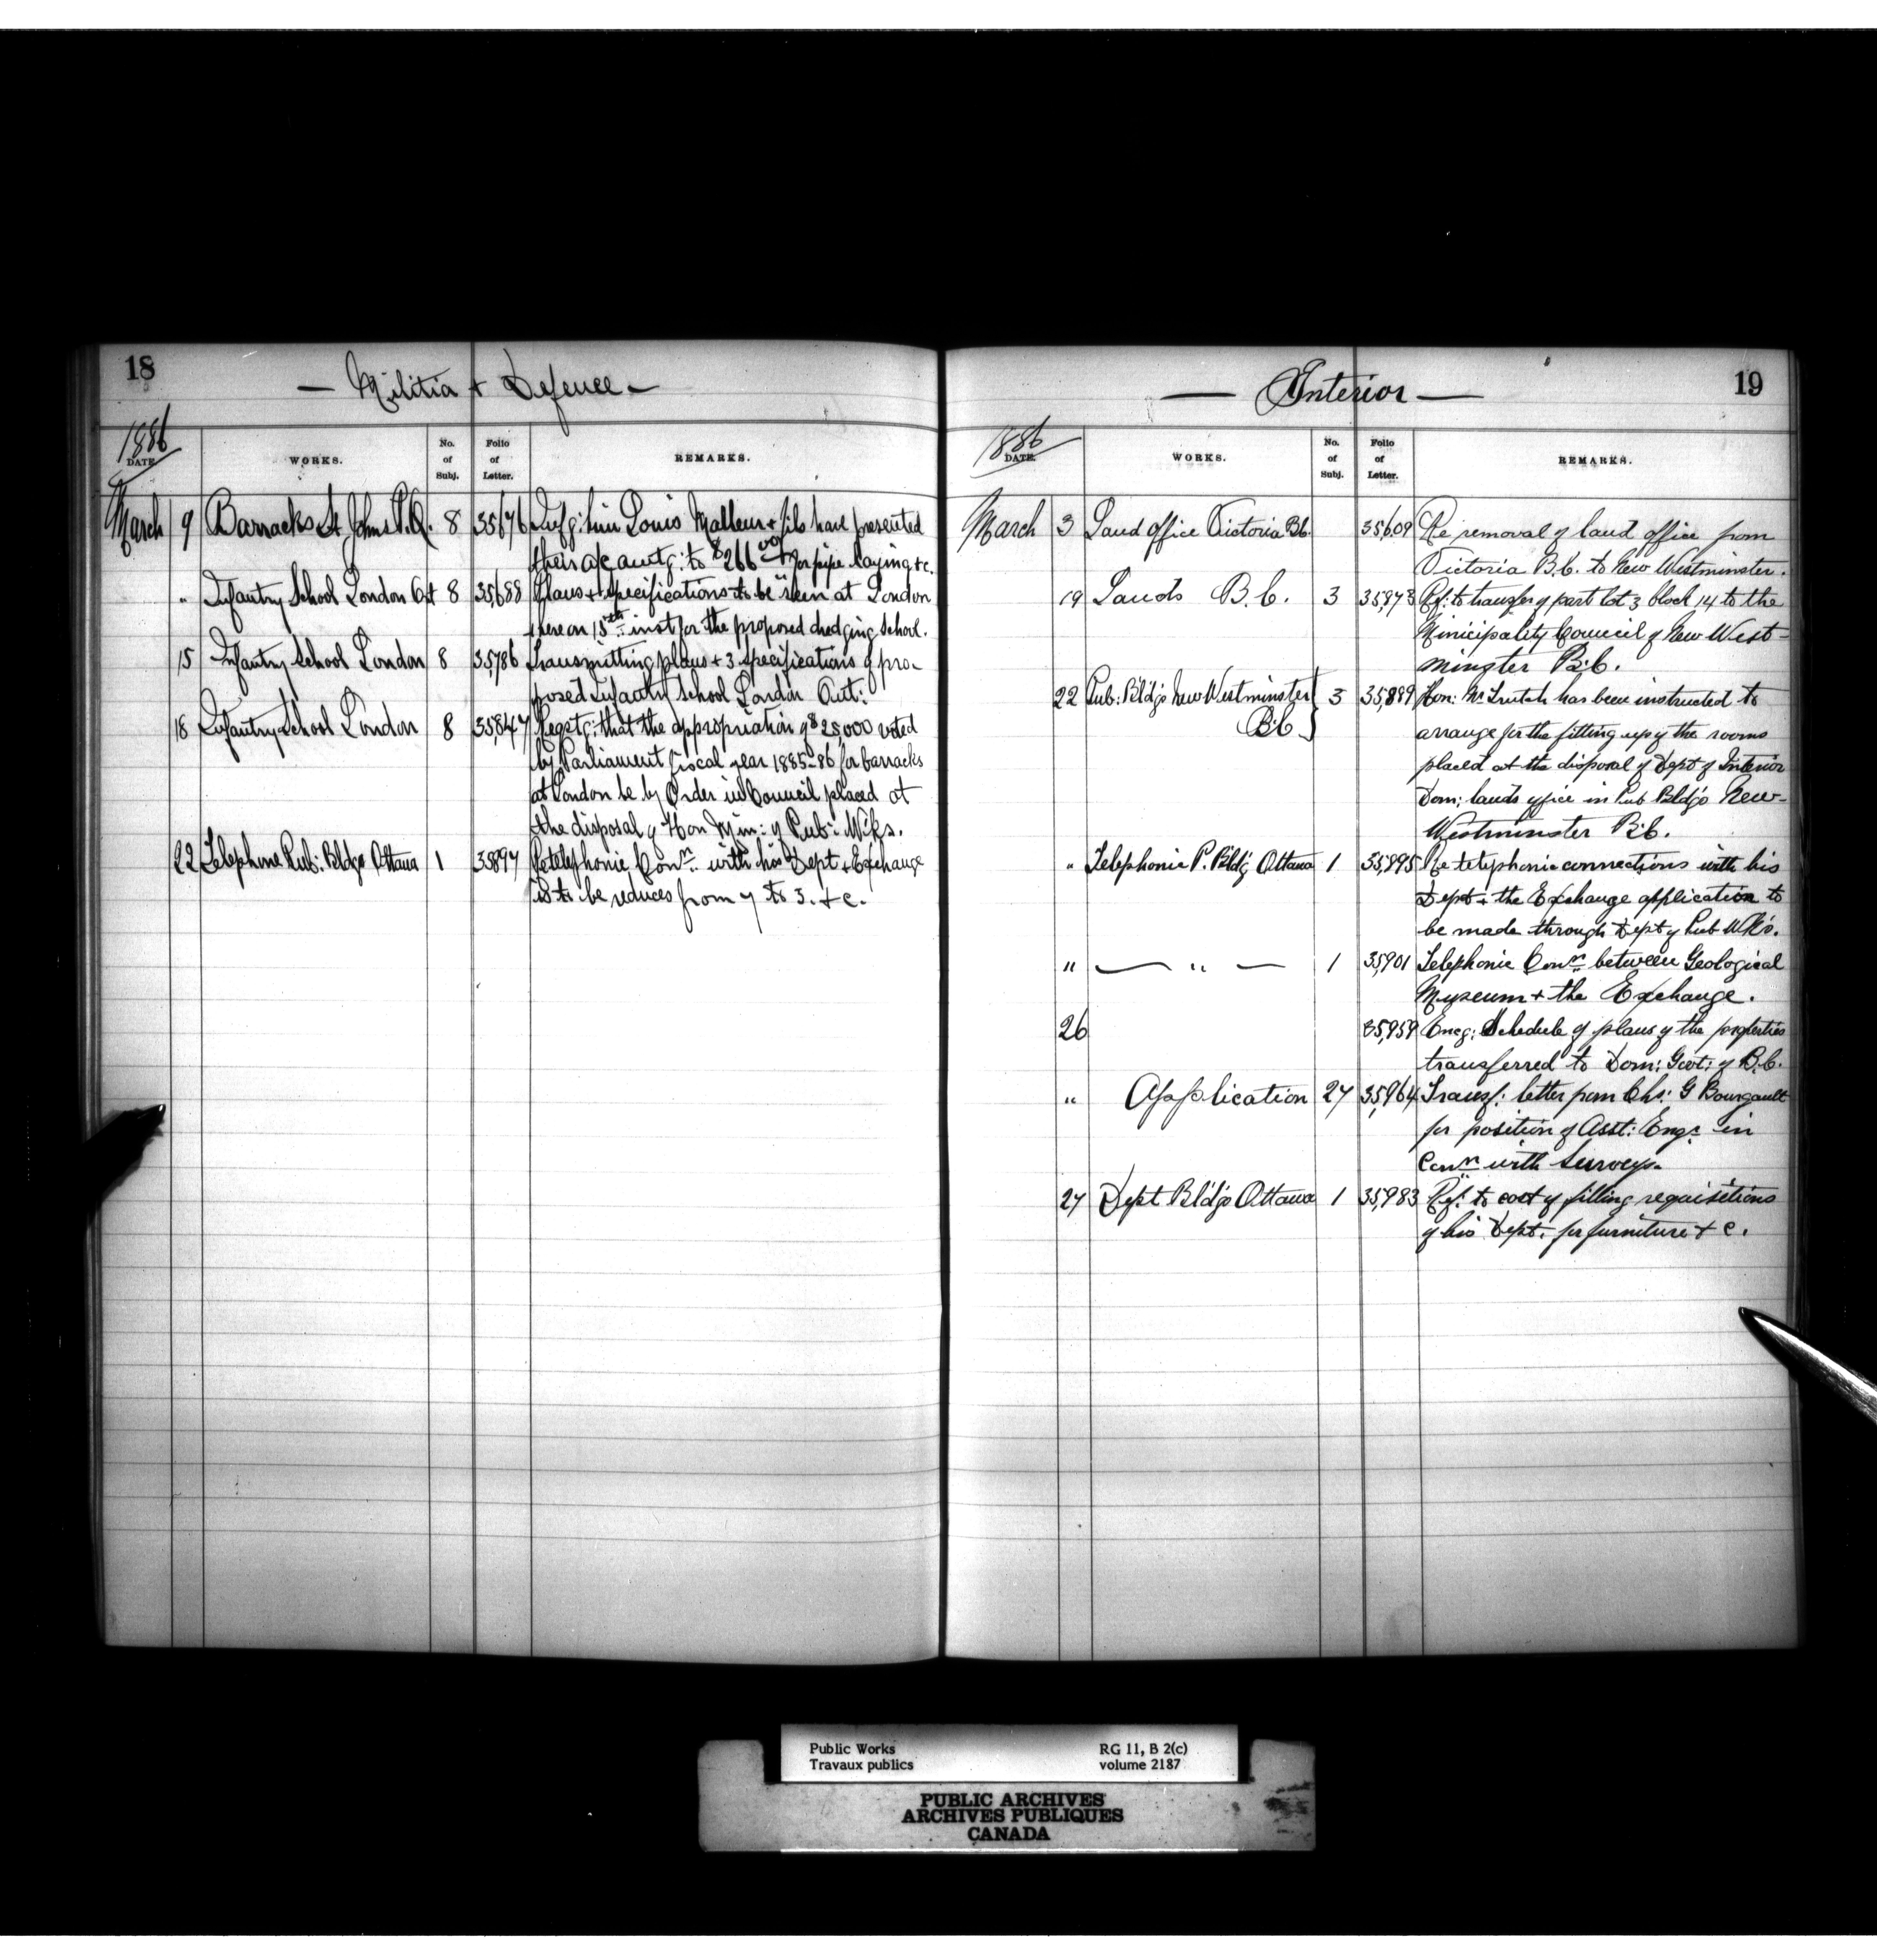 18
— Militia + Defence —
1886
DATE. WORKS. No. of Subj. Folio of Letter. REMARKS.
March 9 Barracks St Johns P.Q. 8 35676 Infg: him Louis Malheur + fils have presented
their a/c amtg: to $266 for pipe laying + c.
" Infantry School London Ont 8 35,688 Plans + Specifications to be seen at London
there on 15th inst for the proposed School.
15 Infantry School London 8 35,786 Transmitting plans + 3 specifications of pro-
posed Infantry School London Ont:
18 Infantry School London 8 35,847 Reqstg: that the appropriation of $25,000 voted
by Parliament fiscal year 1885-86 for barracks
at London be by Order in Council placed at
the disposal of Hon Min: of Pub: Wks.
22 Telephone Pub: Bldgs Ottawa 1 35897 Re telephonic Conn. with his Dept + Exchange
is to be reduces from 7 to 3. + c.
19
— Interior —
1886
DATE. WORKS. No. of Subj. Folio of Letter. REMARKS.
March 3 Land office Victoria B.C. 35,609 Re removal of land office from
Victoria B.C. to New Westminster.
19 Lands B.C. 3 35,873 Ref: to transfer of part lot 3 block 14 to the
Municipality Council of New West-
minster B.C.
22 Pub: Bld'gs New Westminster 3 35,889 Hon: Mr Trutch has been instructed to
B.C. arrange for the fitting up of the rooms
placed at the disposal of Dept of Interior
Dom: lands office in Pub Bld'gs New-
Westminster B.C.
" Telephonic P. Bld'g Ottawa 1 35,895 Re telephonic connections with his
Dept + the Exchange application to
be made through Dept of Pub Wk's.
" — " — 1 35,901 Telephonic Conn. between Geological
Museum + the Exchange.
26 35,959 Encg: Schedule of plans of the properties
transferred to Dom: Govt: of B.C.
" Application 27 35,964 Transf: letter from Chs: G Bourgault
for position of Asst: Engr in
Conn with Surveys.
27 Dept Bld'gs Ottawa 1 35,983 Ref: to cost of filling requisitions
of his Dept: for furniture + c.
Public Works RG 11, B 2(c)
Travaux publics volume 2187
PUBLIC ARCHIVES
ARCHIVES PUBLIQUES
CANADA